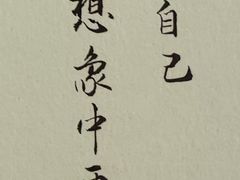 自己
想象中